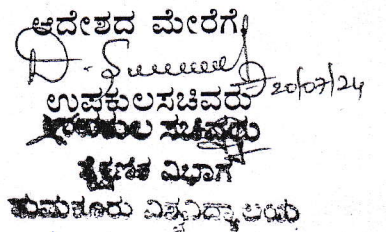 ಆದೇಶದ ಮೇರೆಗೆ,
20/07/24
ಉಪಕುಲಸಚಿವರು
ಸಚಿವರು
ಶೈಕ್ಷಣಿಕ ವಿಭಾಗ
ತುಮಕೂರು ವಿಶ್ವವಿದ್ಯಾಲಯ